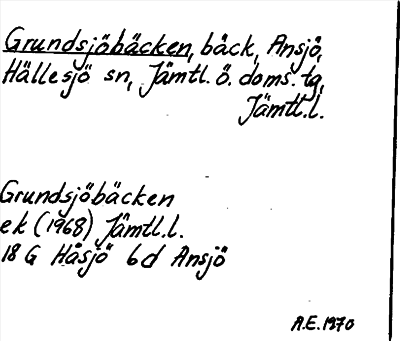 Grundsjöbäcken, bäck, Ansjö,
Hällesjö sn, Jämtl. ö. doms. tg,
Jämtl.l.
Grundsjöbäcken
ek (1968) Jämtl.l.
18 G Håsjö 6d Ansjö
A.E. 1970